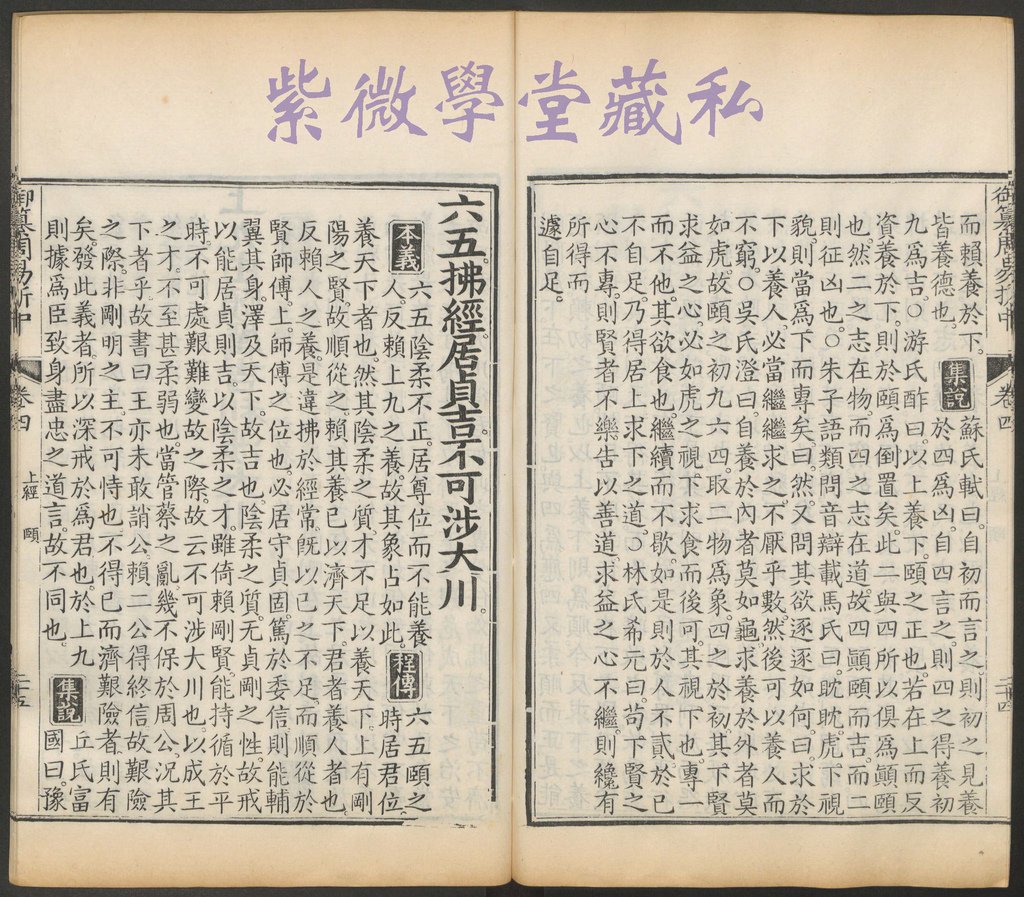 紫微學堂藏私
御纂周易折中 卷四 二十四
而賴養於下。集說 蘇氏軾曰。自初而言之。則初之見養
皆養德也。 於四爲凶。自四言之。則四之得養初
九爲吉。○游氏酢曰。以上養下。頤之正也。若在上而反
資養於下。則於頤爲倒置矣。此二與四所以俱爲顚頤
也。然二之志在物。而四之志在道。故四顚頤而吉而二
則征凶也。○朱子語類問音辯載馬氏曰。眈眈。虎下視
貌。則當爲下而專矣。曰然。又問其欲逐逐如何。曰求於
下以養人。必當繼繼求之。不厭乎數。然後可以養人而
不窮。○吳氏澄曰。自養於內者莫如龜。求養於外者莫
如虎。故頤之初九六四。取二物爲象。四之於初。其下賢
求益之心。必如虎之視下求食而後可。其視下也。專一
而不他。其欲食也。繼續而不歇。如是則於人不貳。於己
不自足。乃得居上求下之道。○林氏希元曰。苟下賢之
心不專。則賢者不樂告以善道。求益之心不繼。則纔有
所得而
遽自足。
六五拂經居貞吉不可涉大川。
本義 六五陰柔不正。居尊位而不能養 程傳 六五頤之
人。反賴上九之養。故其象占如此。 時居君位。
養天下者也。然其陰柔之質。才不足以養天下。上有剛
陽之賢。故順從之。賴其養己以濟天下。君者養人者也
反賴人之養。是違拂於經常。旣以己之不足。而順從於
賢師傅。上。師傅之位也。必居守貞固。篤於委信。則能輔
翼其身。澤及天下。故吉也。陰柔之質。无貞剛之性。故戒
以能居貞則吉。以陰柔之才。雖倚賴剛賢。能持循於平
時。不可處艱難變故之際。故云不可涉大川也。以成王
之才。不至甚柔弱也。當管蔡之亂。幾不保於周公。況其
下者乎。故書曰王亦未敢誚公。賴二公得終信。故艱險
之際。非剛明之主。不可恃也。不得已而濟艱險者。則有
矣。發此義者。所以深戒於爲君也。於上九 集說 丘氏富
則據爲臣致身盡忠之道言。故不同也。 國曰。豫
御纂周易折中 卷四 上經 頤 二十五